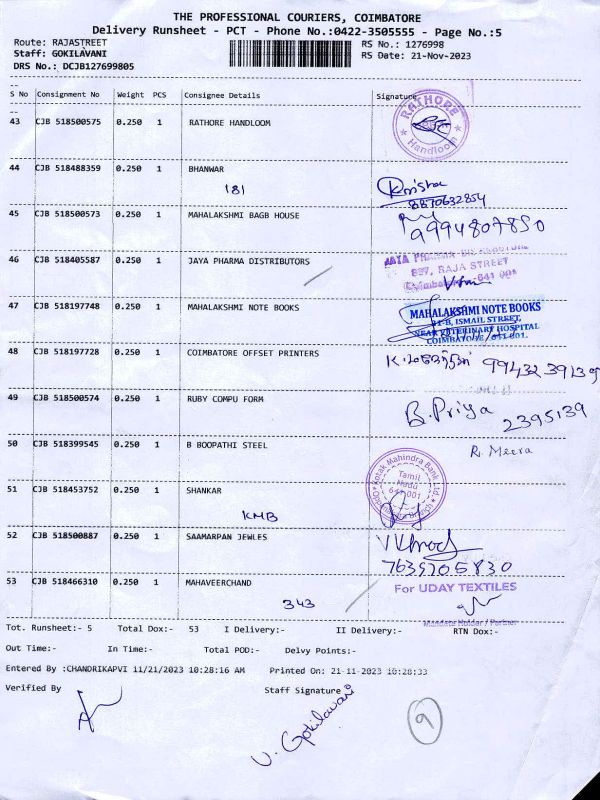 THE PROFESSIONAL COURIERS, COIMBATORE
Delivery Runsheet - PCT - Phone No.:0422-3505555 - Page No.:5
Route: RAJASTREET
RS No.: 1276998
Staff: GOKILAVANI
RS Date: 21-Nov-2023
DRS No.: DCJB127699805
S No Consignment No Weight PCS Consignee Details Signature
43 CJB 518500575 0.250 1 RATHORE HANDLOOM
RATHORE
Handloom
44 CJB 518488359 0.250 1 BHANWAR
181
Krrisha
8870632854
45 CJB 518500573 0.250 1 MAHALAKSHMI BAGB HOUSE
9994807850
46 CJB 518405587 0.250 1 JAYA PHARMA DISTRIBUTORS
827, RAJA STREET
47 CJB 518197748 0.250 1 MAHALAKSHMI NOTE BOOKS
MAHALAKSHMI NOTE BOOKS
11-B, ISMAIL STREET,
NEAR VETERINARY HOSPITAL
COIMBATORE - 641 001.
48 CJB 518197728 0.250 1 COIMBATORE OFFSET PRINTERS
9943239139
49 CJB 518500574 0.250 1 RUBY COMPU FORM
B.Priya
2395139
50 CJB 518399545 0.250 1 B BOOPATHI STEEL
R. Meera
51 CJB 518453752 0.250 1 SHANKAR
KMB
Kotak Mahindra Bank Ltd.
Tamil
Nadu
641 001
52 CJB 518500887 0.250 1 SAAMARPAN JEWLES
7639705830
53 CJB 518466310 0.250 1 MAHAVEERCHAND
343
For UDAY TEXTILES
Mandate Holder / Partner
Tot. Runsheet:- 5 Total Dox:- 53 I Delivery:- II Delivery:- RTN Dox:-
Out Time:- In Time:- Total POD:- Delvy Points:-
Entered By :CHANDRIKAPVI 11/21/2023 10:28:16 AM Printed On: 21-11-2023 10:28:33
Verified By Staff Signature
V. Gokilavani
9